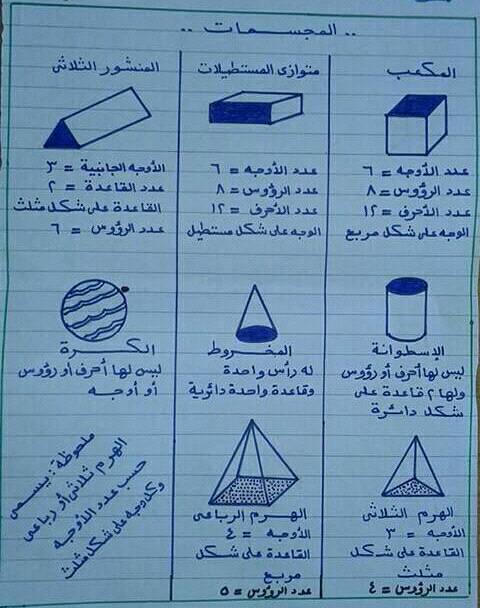 .. المجسمات ..
المكعب
عدد الأوجه = ٦
عدد الرؤوس = ٨
عدد الأحرف = ١٢
الوجه على شكل مربع
متوازى المستطيلات
عدد الأوجه = ٦
عدد الرؤوس = ٨
عدد الأحرف = ١٢
الوجه على شكل مستطيل
المنشور الثلاثى
الأوجه الجانبية = ٣
عدد القاعدة = ٢
القاعدة على شكل مثلث
عدد الرؤوس = ٦
الإسطوانة
ليس لها أحرف أو رؤوس
ولها ٢ قاعدة على
شكل دائرة
المخروط
له رأس واحدة
وقاعدة واحدة دائرية
الكرة
ليس لها أحرف أو رؤوس
أو أوجه
الهرم الثلاثى
الأوجه = ٣
القاعدة على شكل
مثلث
عدد الرؤوس = ٤
الهرم الرباعى
الأوجه = ٤
القاعدة على شكل
مربع
عدد الرؤوس = ٥
ملحوظة : يسمى
الهرم ثلاثى أو رباعى
حسب عدد الأوجه
وكل وجه على شكل مثلث